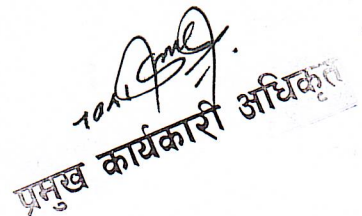 प्रमुख कार्यकारी अधिकृत